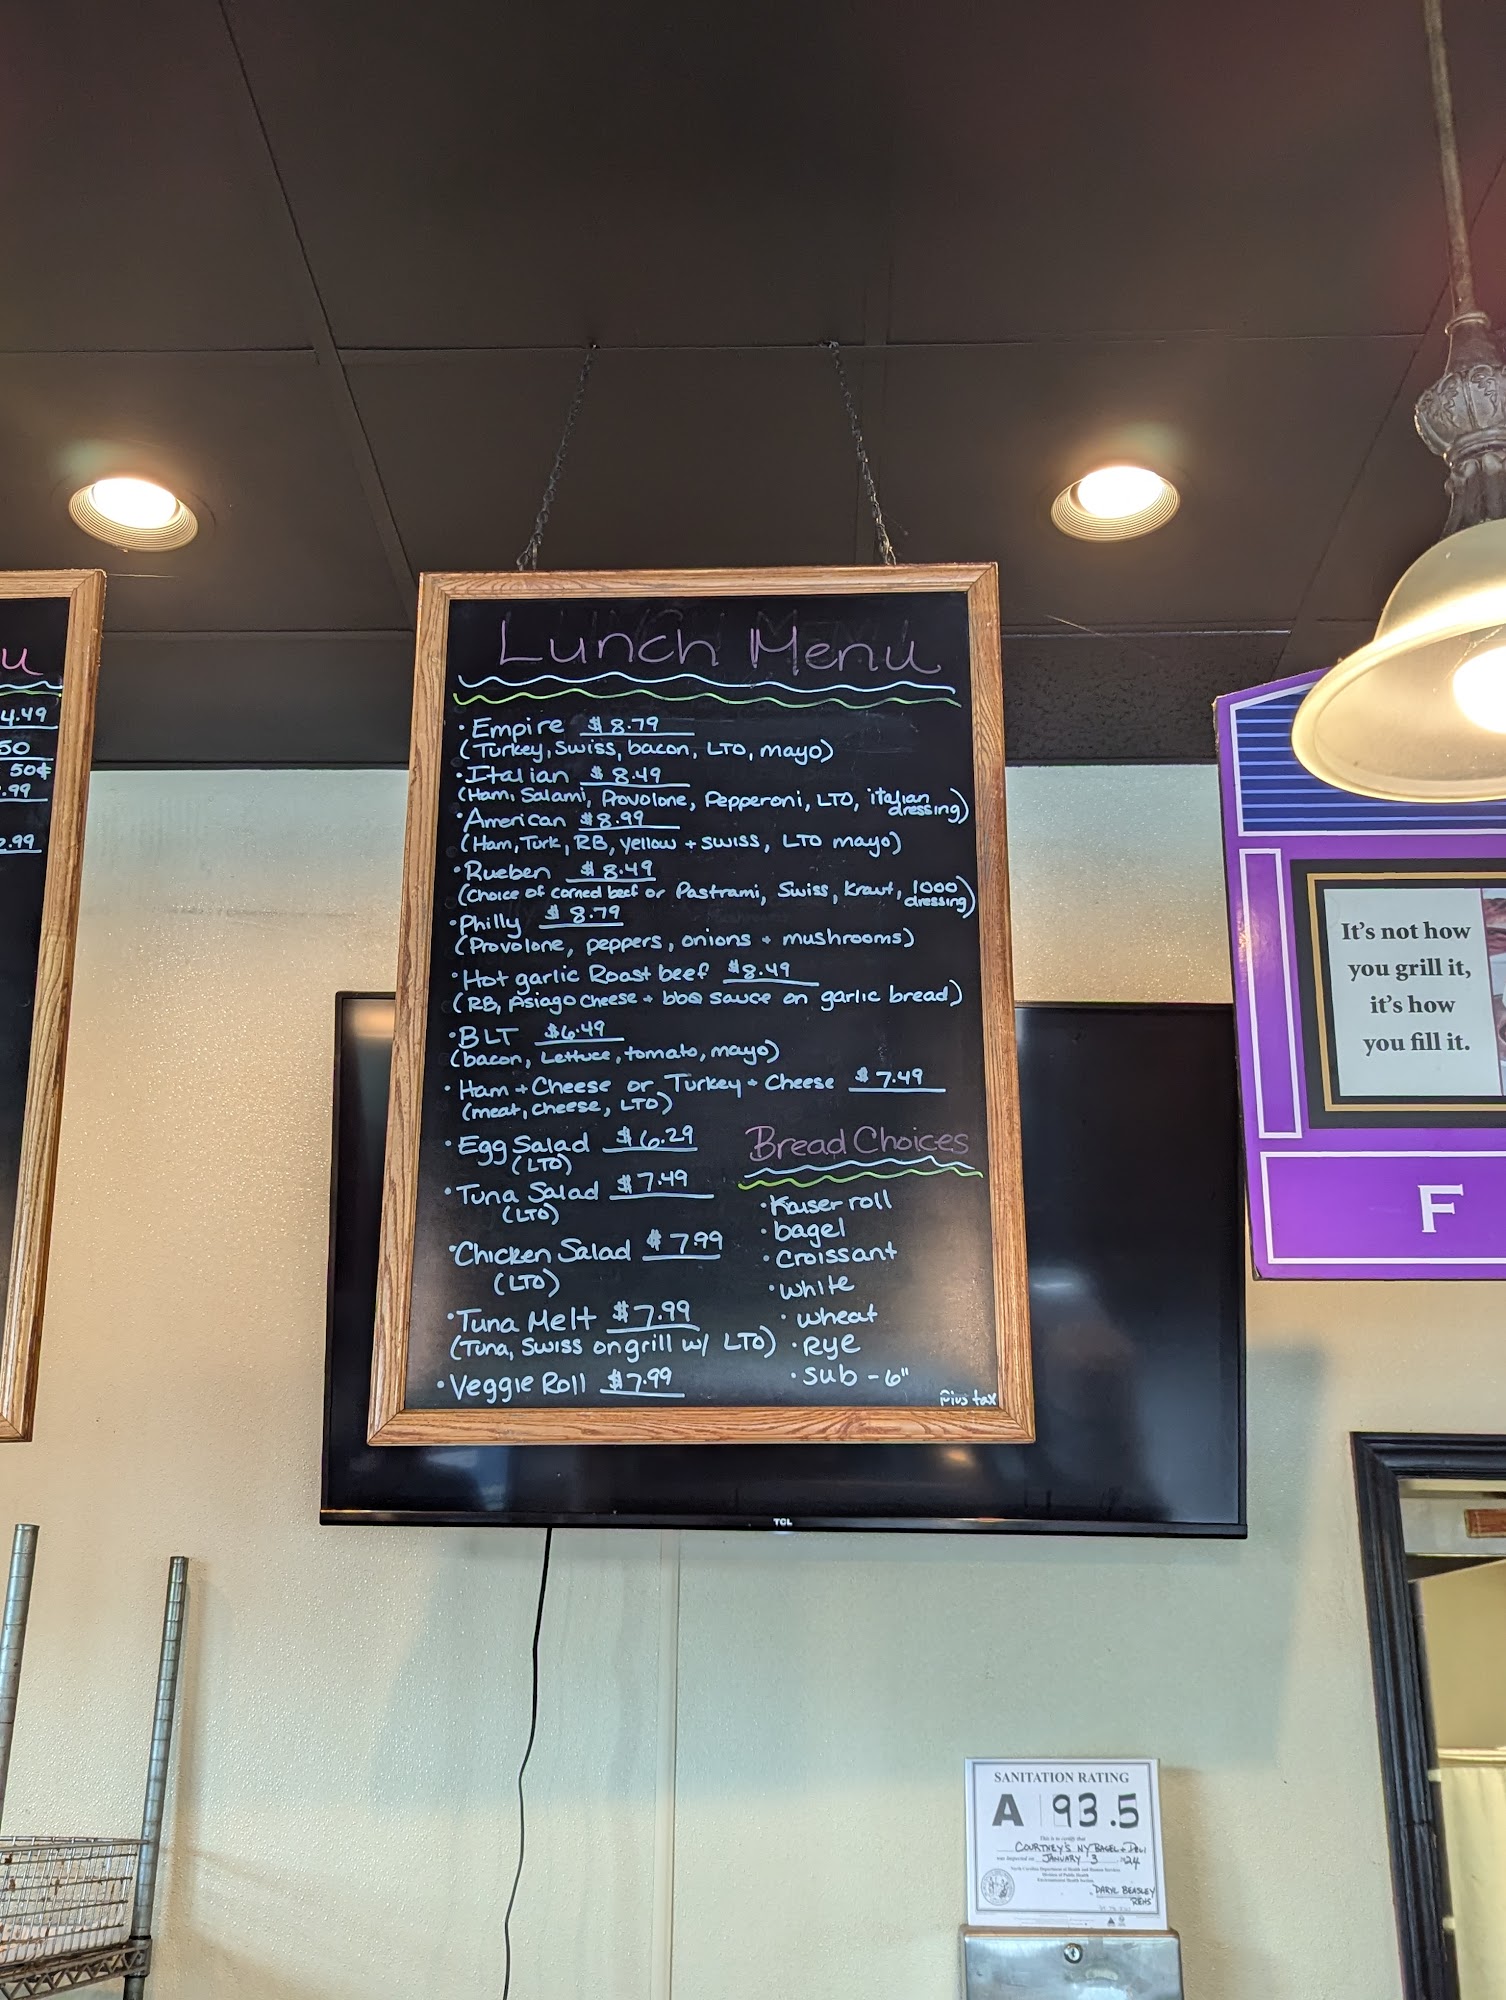 u
4.49
50
50¢
.99
2.99
Lunch Menu
• Empire $8.79
(Turkey, Swiss, bacon, LTO, mayo)
• Italian $8.49
(Ham, Salami, Provolone, Pepperoni, LTO, italian dressing)
• American $8.99
(Ham, Turk, RB, yellow + swiss, LTO mayo)
• Rueben $8.49
(Choice of corned beef or Pastrami, Swiss, Kraut, 1000 dressing)
• Philly $8.79
(Provolone, peppers, onions + mushrooms)
• Hot garlic Roast beef $8.49
(RB, Asiago cheese + bbq sauce on garlic bread)
• BLT $6.49
(bacon, Lettuce, tomato, mayo)
• Ham + Cheese or Turkey + Cheese $7.49
(meat, cheese, LTO)
• Egg Salad $6.29
(LTO)
• Tuna Salad $7.49
(LTO)
• Chicken Salad $7.99
(LTO)
• Tuna Melt $7.99
(Tuna, Swiss on grill w/ LTO)
• Veggie Roll $7.99
Bread Choices
• Kaiser roll
• bagel
• Croissant
• white
• wheat
• Rye
• sub - 6"
Plus tax
It's not how
you grill it,
it's how
you fill it.
F
TCL
SANITATION RATING
A 93.5
This is to certify that
COURTNEY'S NY BAGEL + DELI
was inspected on JANUARY 3 24
North Carolina Department of Health and Human Services
Division of Public Health
Environmental Health Section
DARYL BEASLEY
REHS